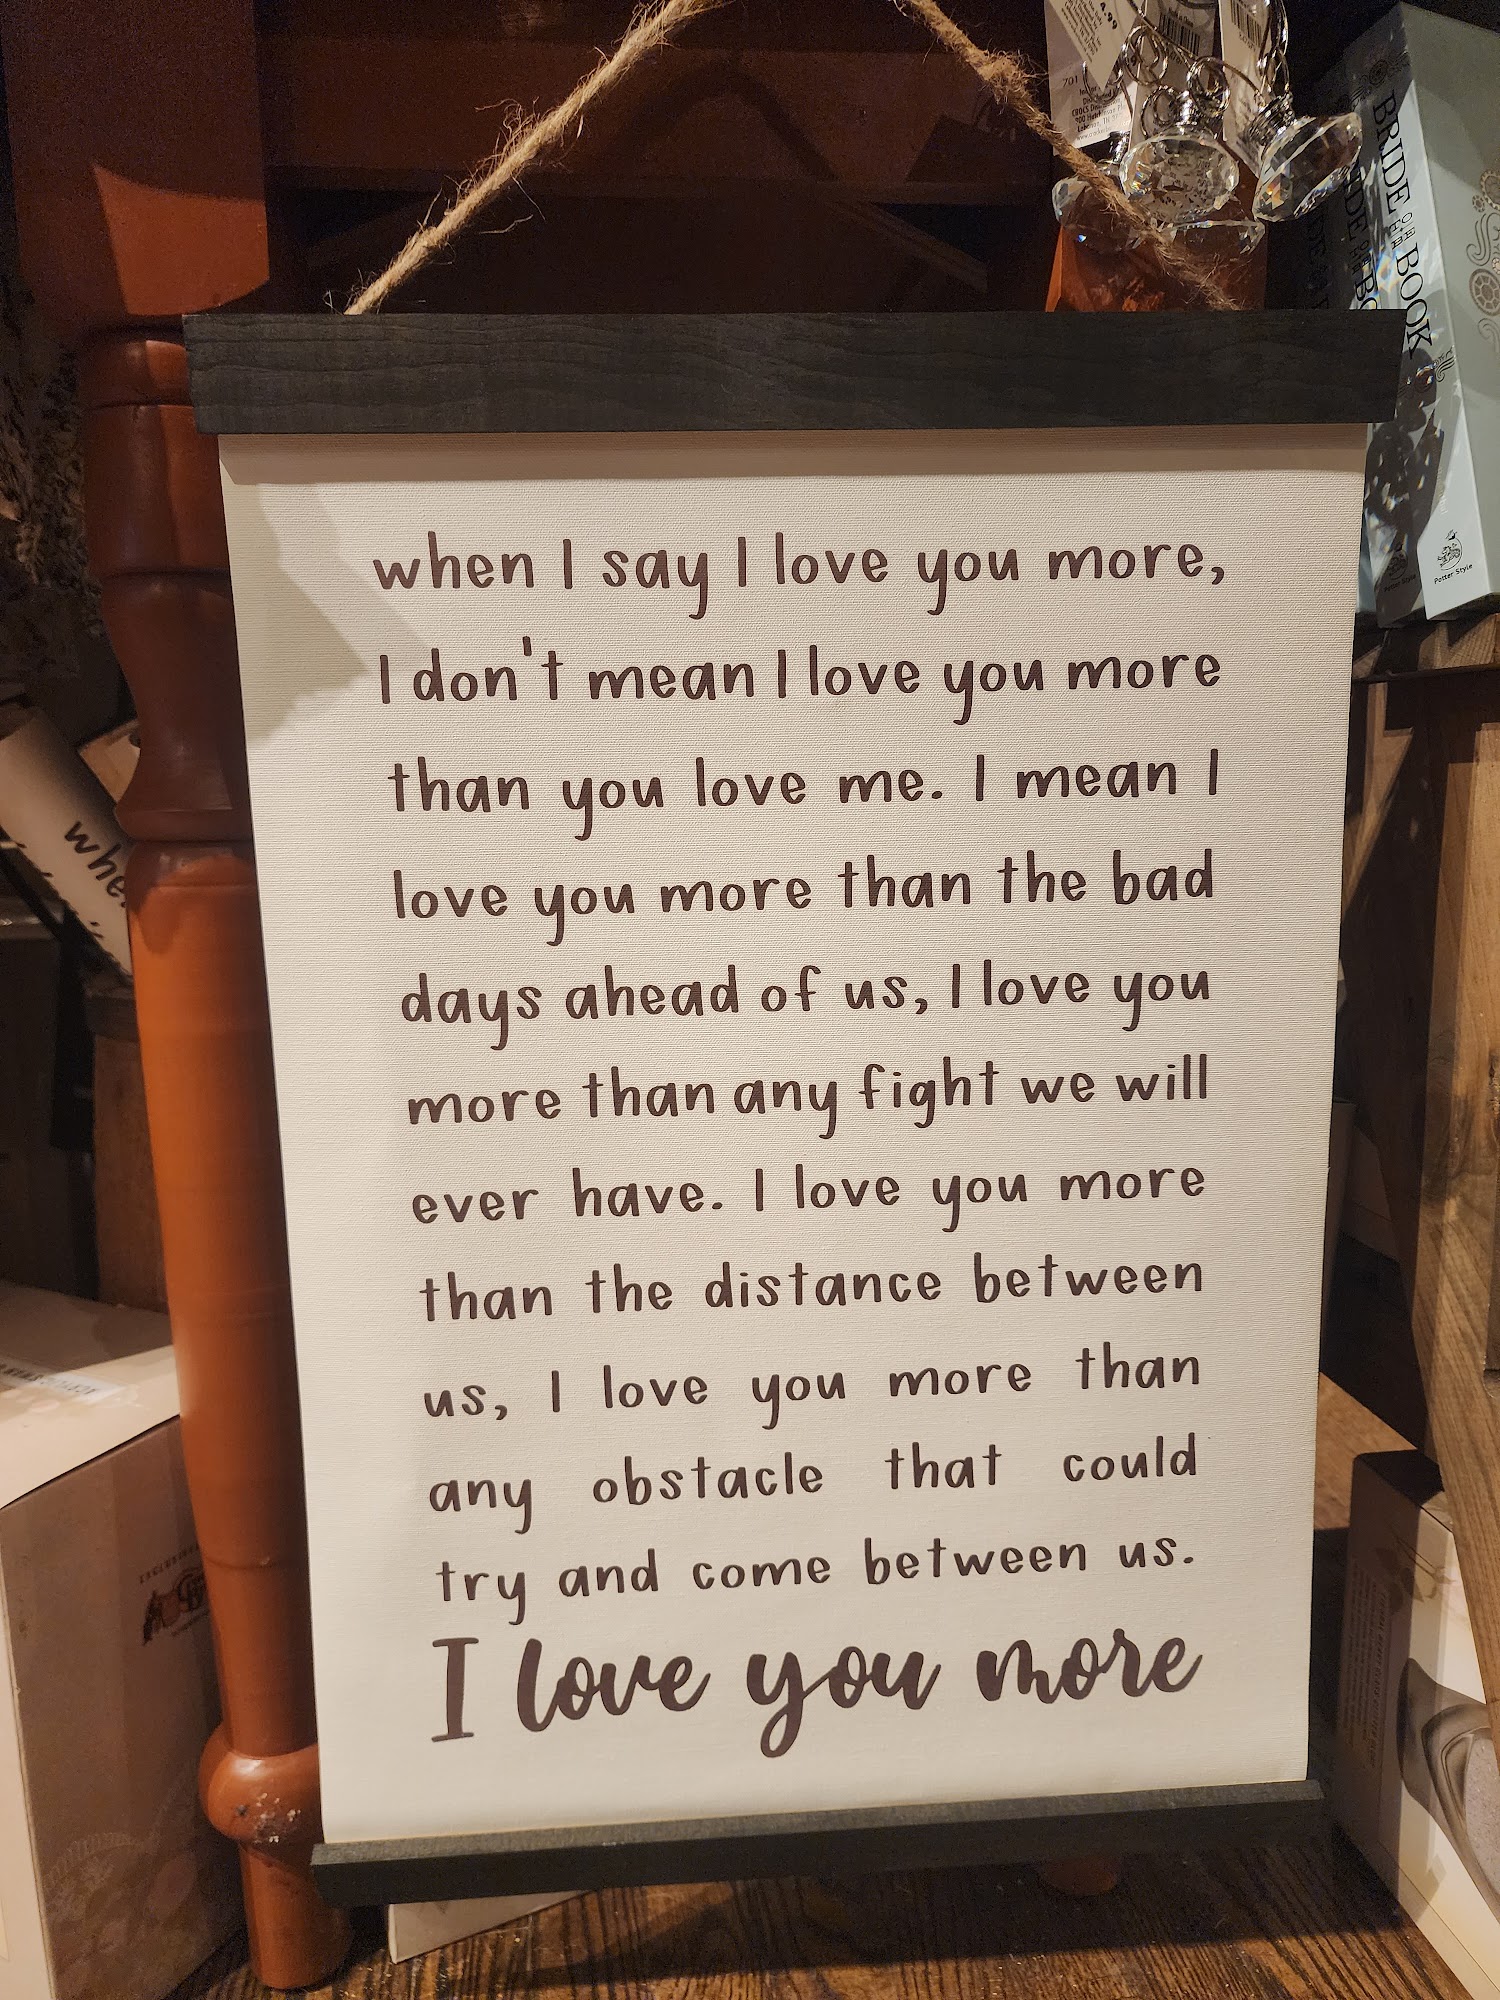 4.99
701
Lebanon, TN
BRIDE OR BOOK
Potter Style
when I say I love you more,
I don't mean I love you more
than you love me. I mean I
love you more than the bad
days ahead of us, I love you
more than any fight we will
ever have. I love you more
than the distance between
us, I love you more than
any obstacle that could
try and come between us.
I love you more
whe